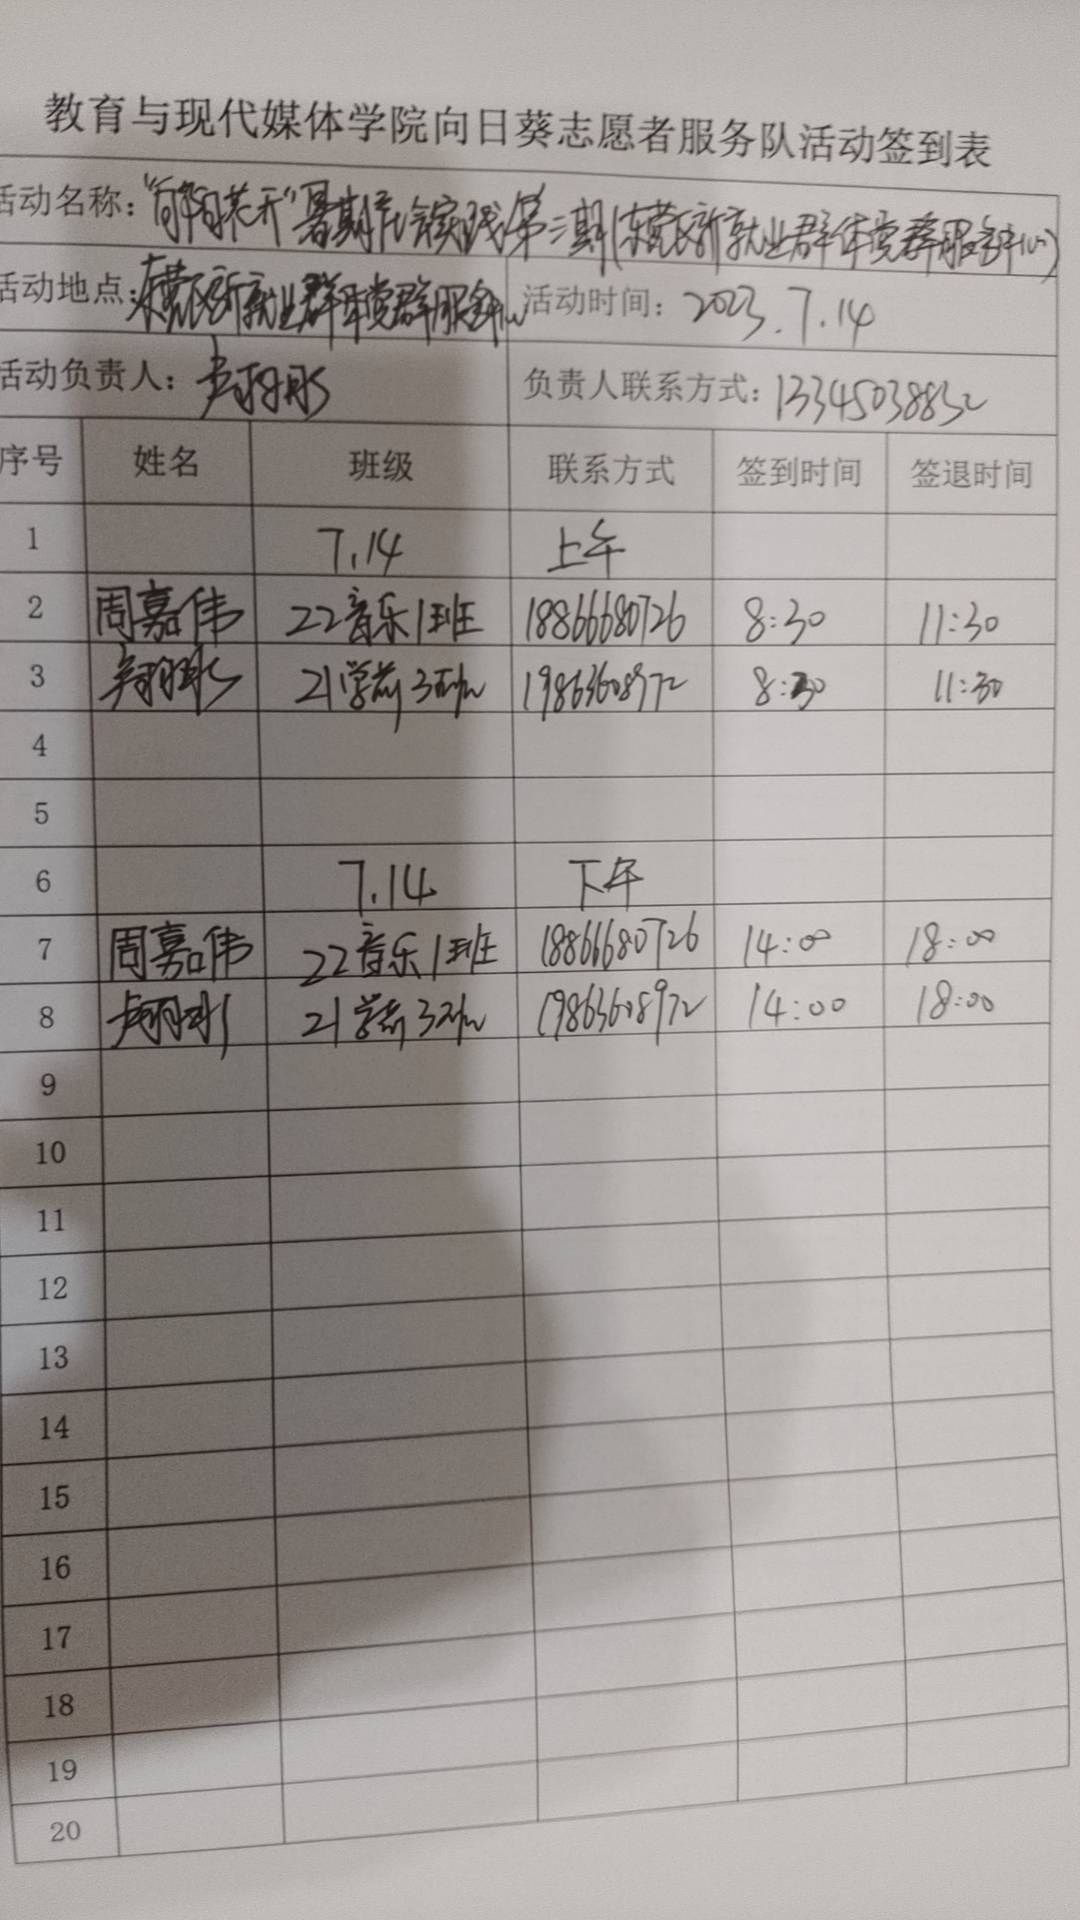 教育与现代媒体学院向日葵志愿者服务队活动签到表
活动名称：“向阳花开”暑期社会实践第二期(东营区新就业群体党群服务中心)
活动地点：东营区新就业群体党群服务中心 活动时间：2023.7.14
活动负责人： 负责人联系方式：13345038832
序号 姓名 班级 联系方式 签到时间 签退时间
1 7.14 上午
2 周嘉伟 22音乐1班 18866680726 8:30 11:30
3 21学前3班 19863608972 8:30 11:30
4
5
6 7.14 下午
7 周嘉伟 22音乐1班 18866680726 14:00 18:00
8 21学前3班 19863608972 14:00 18:00
9
10
11
12
13
14
15
16
17
18
19
20